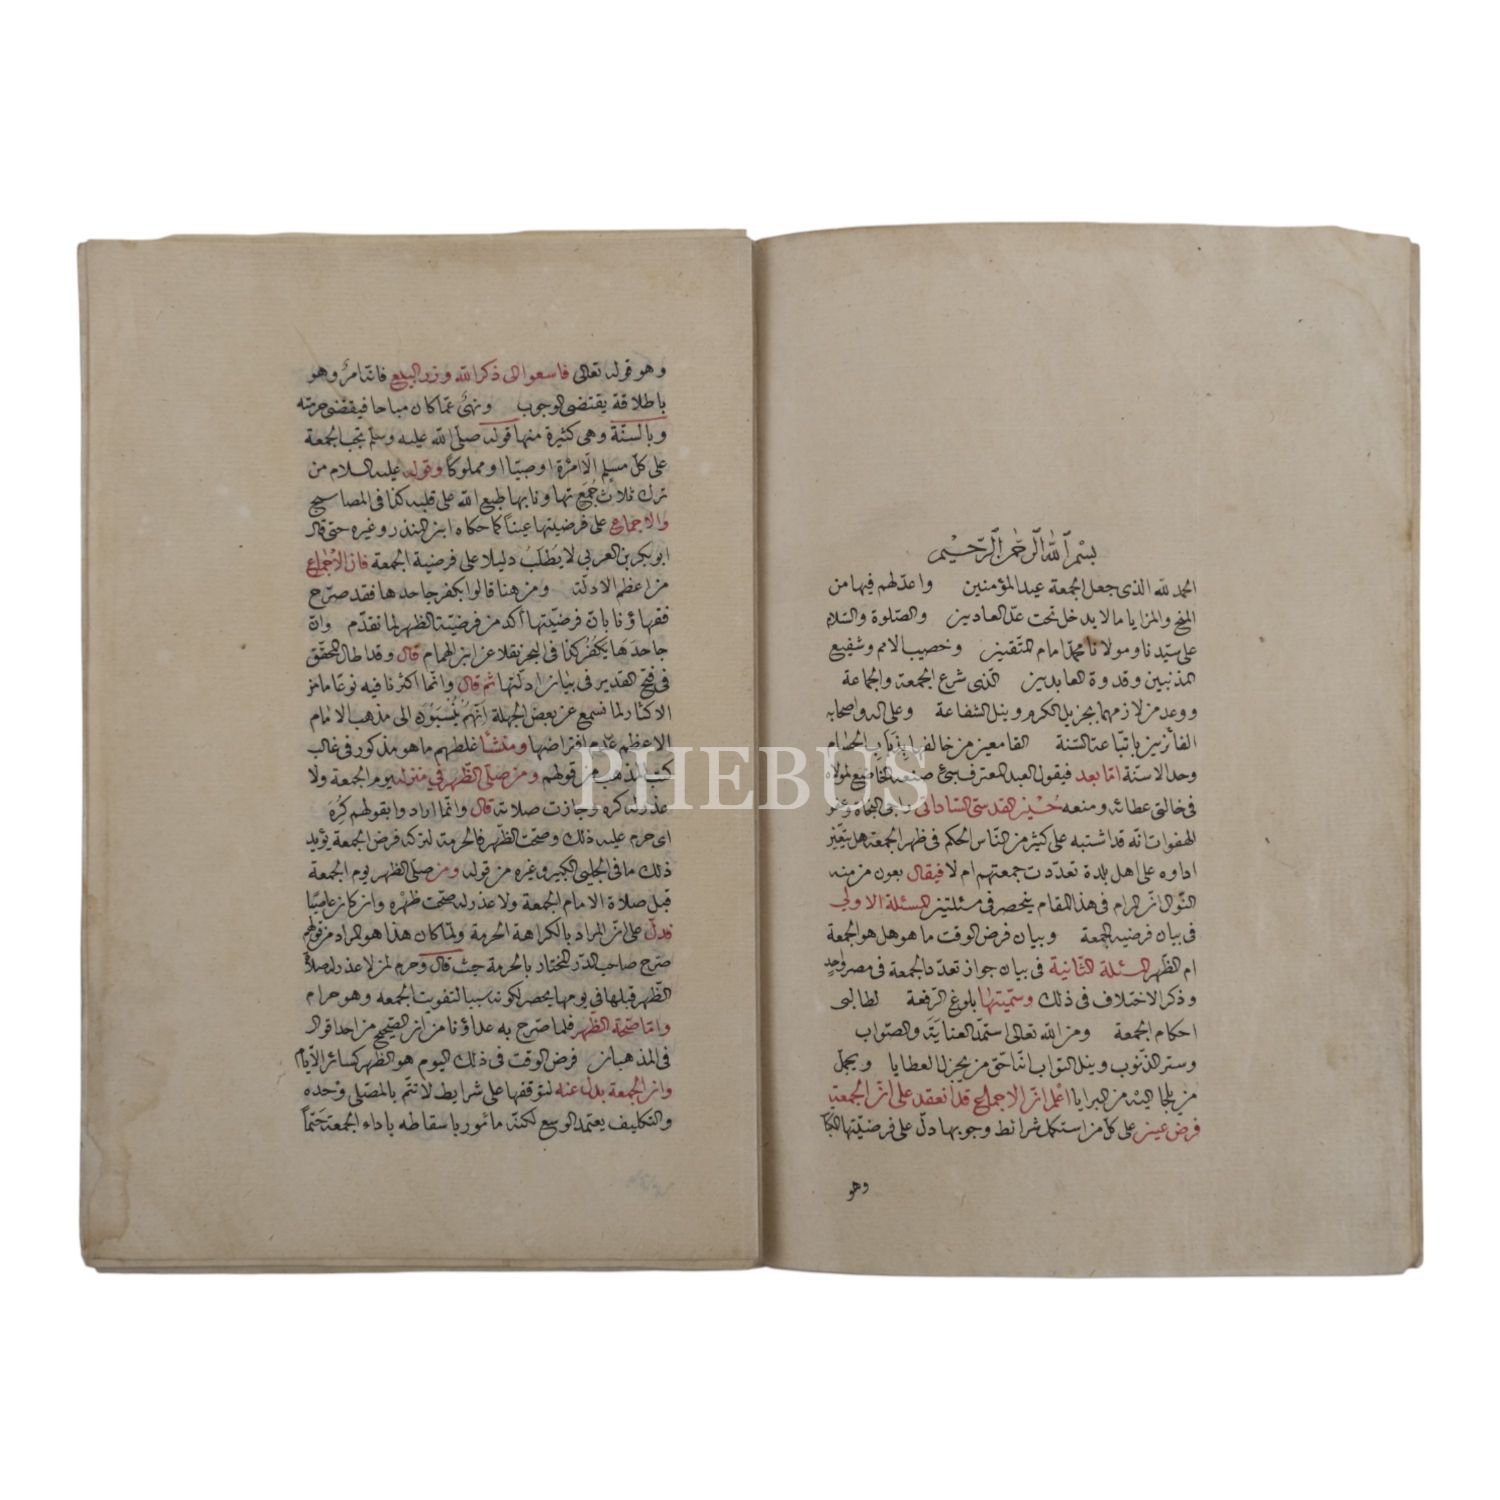 بسم الله الرحمن الرحيم
الحمد لله الذى جعل الجمعة عيد المؤمنين واعدّ لهم فيها من
المنح والمزايا ما لا يدخل تحت عدّ العادين والصّلوة والسّلام
على سيّدنا ومولانا محمّد امام المتّقين وخصيب الامم وشفيع
المذنبين وقدوة العابدين الّذى شرع الجمعة والجماعة
ووعد من لازمهما بجزيل الكرم وبنيل الشفاعة وعلى اله واصحابه
الفائزين باتّباعة السّنة القامعين من خالفها
وحد الاسنّة امّا بعد فيقول العبد المعترف بسئ صنعه الخاضع لمولاه
فى حالتى عطائه ومنعه حسين القدسى السّاداتى راجى النجاة وعفو
الهفوات انّه قد اشتبه على كثير من النّاس الحكم فى ظهر الجمعة هل يتعيّن
اداوه على اهل بلدة تعدّدت جمعتهم ام لا فيقال بعون من منه
التّوال انّ المرام فى هذا المقام ينحصر فى مسئلتين المسئلة الاولى
فى بيان فرضيه الجمعة وبيان فرض الوقت ما هو هل هو الجمعة
ام الظهر المسئلة الثّانية فى بيان جواز تعدّد الجمعة فى مصر واحدٍ
وذكر الاختلاف فى ذلك وسمّيتها بلوغ الرّفعة لطالبى
احكام الجمعة ومن الله تعالى استمدّ العناية والصّواب
وستر الذّنوب ونيل الثواب انّه احقّ من يجزل العطايا ويجمل
من يلجا اليه من البرايا اعلم انّ الاجماع قد انعقد على انّ الجمعة
فرض عين على كلّ من استكمل شرائط وجوبها دلّ على فرضيّتها الكتاب
وهو
وهو قوله تعالى فاسعوا الى ذكر الله وذروا البيع فانّه امرٌ وهو
باطلاقة يقتضى الوجوب ونهىٌ عمّا كان مباحا فيقتضى حرمته
وبالسنّة وهى كثيرة منها قوله صلّى الله عليه وسلّم تجب الجمعة
على كلّ مسلم الّا امرٔة او صبيّا او مملوكا وقوله عليه السلام من
ترك ثلاث جُمَع تهاونا بها طبع الله على قلبه كذا فى المصابيح
والاجماع على فرضيتها عيناً كما حكاه ابن المنذر وغيره حتى قال
ابو بكر بن العربى لا يطلب دليلا على فرضية الجمعة فانّ الاجماع
من اعظم الادلّة ومن هنا قالوا بكفر جاحدها فقد صرّح
فقهاؤنا بانّ فرضيّتها آكد من فرضيّة الظهر لما تقدّم وانّ
جاحدها يكفُرُ كذا فى البحر نقلا عن ابن الهمام قال وقد اطال المحقّق
فى فتح القدير فى بيان ادلّتها ثم قال وانّما اكثرنا فيه نوعًا ما من
الاكثار لما نسمع عن بعض الجهلة انّهم يُنسبون الى مذهب الامام
الاعظم عدم افتراضها ومنشأ غلطهم ما هو مذكور فى غالب
كتب المذهب من قولهم ومن صلّى الظّهر فى منزله يوم الجمعة ولا
عذر له كره وجازت صلاته قال وانّما ارادوا بقولهم كُرِه
اى حرم عليه ذلك وصحّت الظّهر فالحرمة لتركه فرض الجمعة يؤيد
ذلك ما فى الحلبى الكبير وغيره من قوله ومن صلّى الظهر يوم الجمعة
قبل صلاة الامام الجمعة ولا عذر له صحّت ظهره وان كان عاصيًا
فدلّ على انّ المراد بالكراهة الحرمة ولمّا كان هذا هو المراد من قولهم
صرّح صاحب الدّر المختار بالحرمة حيث قال وحرم لمن لا عذر له صلاة
الظّهر قبلها فى يومها بمصر لكونه سببا لتفويت الجمعة وهو حرام
وامّا صحّة الظّهر فلما صرّح به علماؤنا من ان الصّحيح من احد اقوال
فى المذهب انّ فرض الوقت فى ذلك اليوم هو الظهر كسائر الايّام
وانّ الجمعة بدلٌ عنه لتوقّفها على شرايط لا تتمّ بالمصلّى وحده
والتكليف يعتمد الوسع لكنّه مأمور باسقاطه باداء الجمعة حتماً
PHEBUS